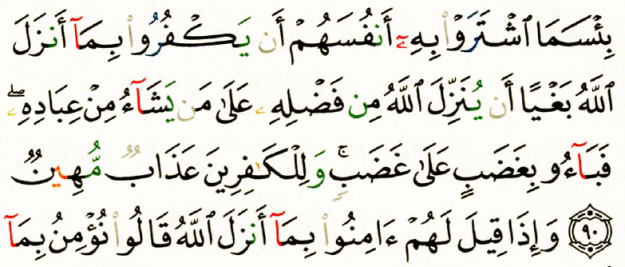 بِئْسَمَا ٱشْتَرَوْا۟ بِهِۦٓ أَنفُسَهُمْ أَن يَكْفُرُوا۟ بِمَآ أَنزَلَ
ٱللَّهُ بَغْيًا أَن يُنَزِّلَ ٱللَّهُ مِن فَضْلِهِۦ عَلَىٰ مَن يَشَآءُ مِنْ عِبَادِهِۦ ۖ
فَبَآءُو بِغَضَبٍ عَلَىٰ غَضَبٍ ۚ وَلِلْكَـٰفِرِينَ عَذَابٌ مُّهِينٌ
۝٩٠ وَإِذَا قِيلَ لَهُمْ ءَامِنُوا۟ بِمَآ أَنزَلَ ٱللَّهُ قَالُوا۟ نُؤْمِنُ بِمَآ